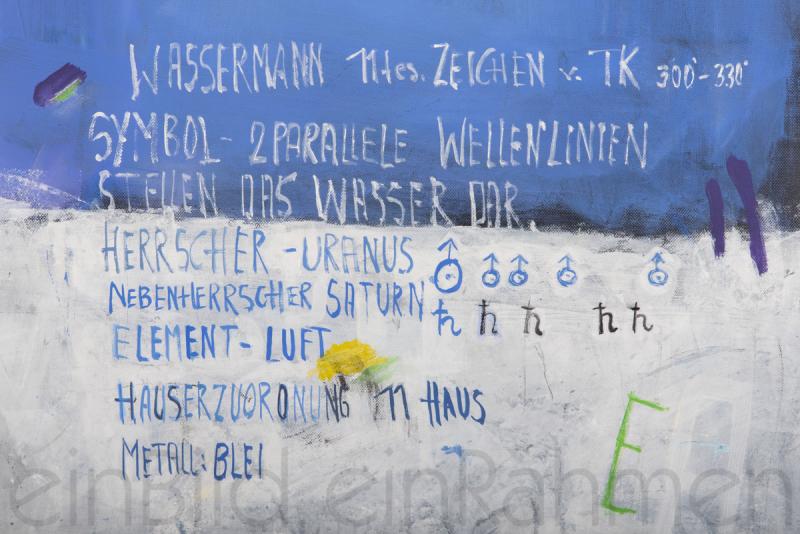 WASSERMANN 11tes. ZEICHEN v. TK 300°-330°
SYMBOL - 2 PARALLELE WELLENLINIEN
STELLEN DAS WASSER DAR.
HERRSCHER - URANUS ⛢ ⛢ ⛢ ⛢ ⛢
NEBENHERRSCHER SATURN ♄ ♄ ♄ ♄ ♄
ELEMENT - LUFT
HAUSERZUORDNUNG 11 HAUS
METALL: BLEI
E
einBild einRahmen